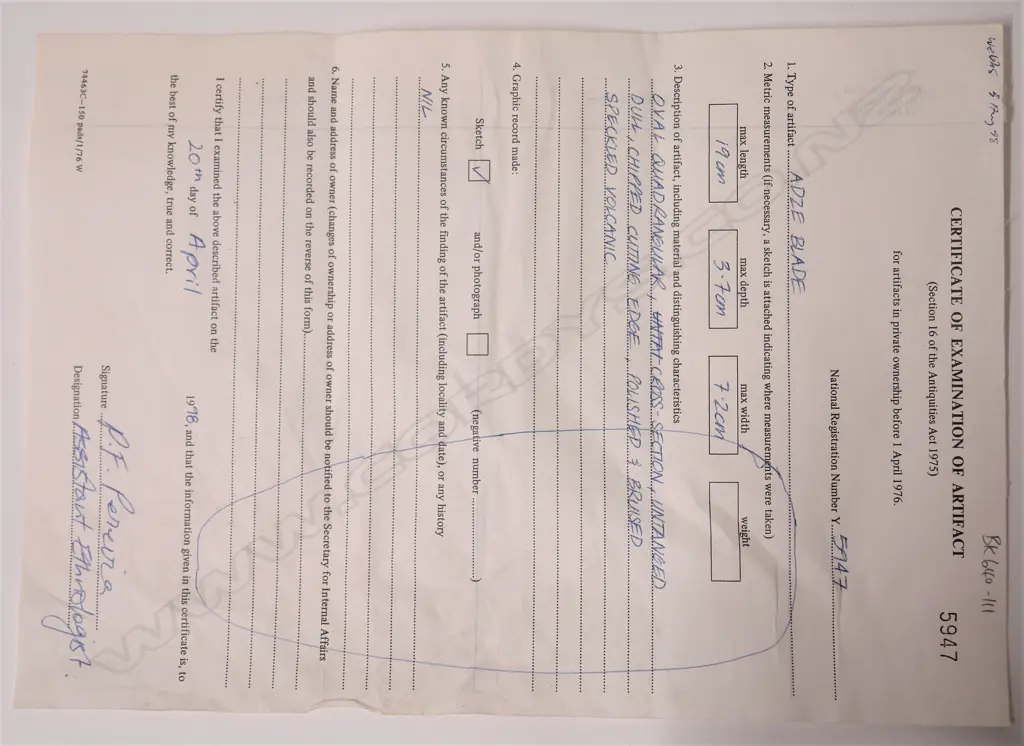 Webbs 5 Aug 98
BK640-111
CERTIFICATE OF EXAMINATION OF ARTIFACT 5947
(Section 16 of the Antiquities Act 1975)
for artifacts in private ownership before 1 April 1976.
National Registration Number Y 5947
1. Type of artifact ADZE BLADE
2. Metric measurements (if necessary, a sketch is attached indicating where measurements were taken)
max length max depth max width weight
19cm 3.7cm 7.2cm
3. Description of artifact, including material and distinguishing characteristics
OVAL QUADRANGULAR, CROSS-SECTION, UNTANGED
DULL, CHIPPED CUTTING EDGE, POLISHED & BRUISED
SPECKLED VOLCANIC
4. Graphic record made:
Sketch ✓ and/or photograph (negative number ....................)
5. Any known circumstances of the finding of the artifact (including locality and date), or any history
NIL
6. Name and address of owner (changes of ownership or address of owner should be notified to the Secretary for Internal Affairs
and should also be recorded on the reverse of this form)
I certify that I examined the above described artifact on the
20th day of April 1978, and that the information given in this certificate is, to
the best of my knowledge, true and correct.
Signature
Designation Assistant Ethnologist.
74463C—150 pads/1/76 W